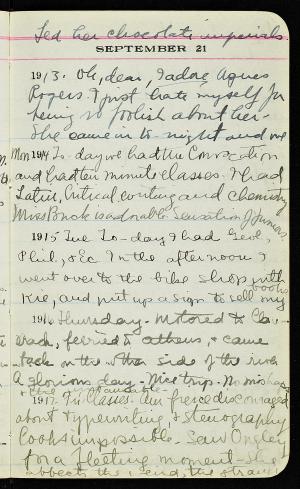 Fed her chocolate imperials
SEPTEMBER 21
1913. Oh, dear, I adore Agnes
Rogers. I just hate myself for
being so foolish about her.
She came in to-night and we
Mon 1914 To-day we had the Convocation
and had ten minute classes. I had
Latin, Critical writing and chemistry
Miss Buck is adorable. Juniors
1915 Tue To-day I had Geol,
Phil, & Ec. In the afternoon I
went over to the bike shop with
Kie, and put up a sign to sell my
books
1916 Thursday. Motored to
ferried to Athens, & came
back on the other side of the river
A glorious day. Nice trip. No mishaps
1917. Fri Classes. Am fierce discouraged
about typewriting, & stenography
Looks impossible. Saw
for a fleeting moment - She
the